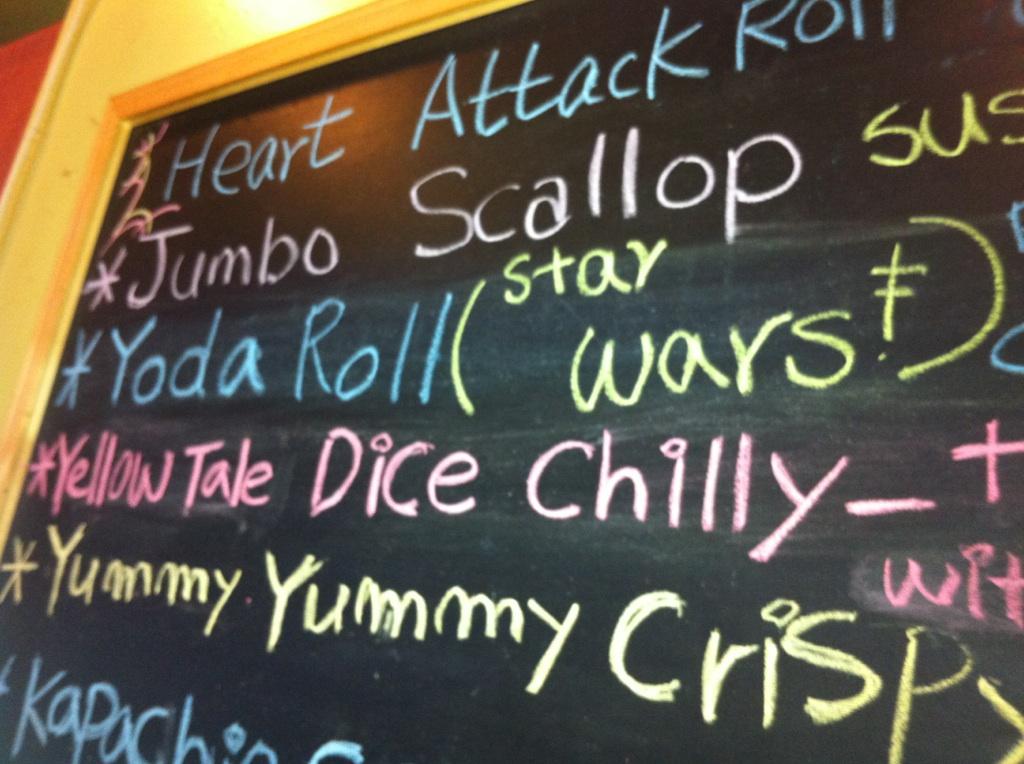 Heart Attack Roll
*Jumbo Scallop sus
*Yoda Roll (star wars!)
*Yellow Tale Dice Chilly - +
wit
*Yummy Yummy Crispy
*Kapachi